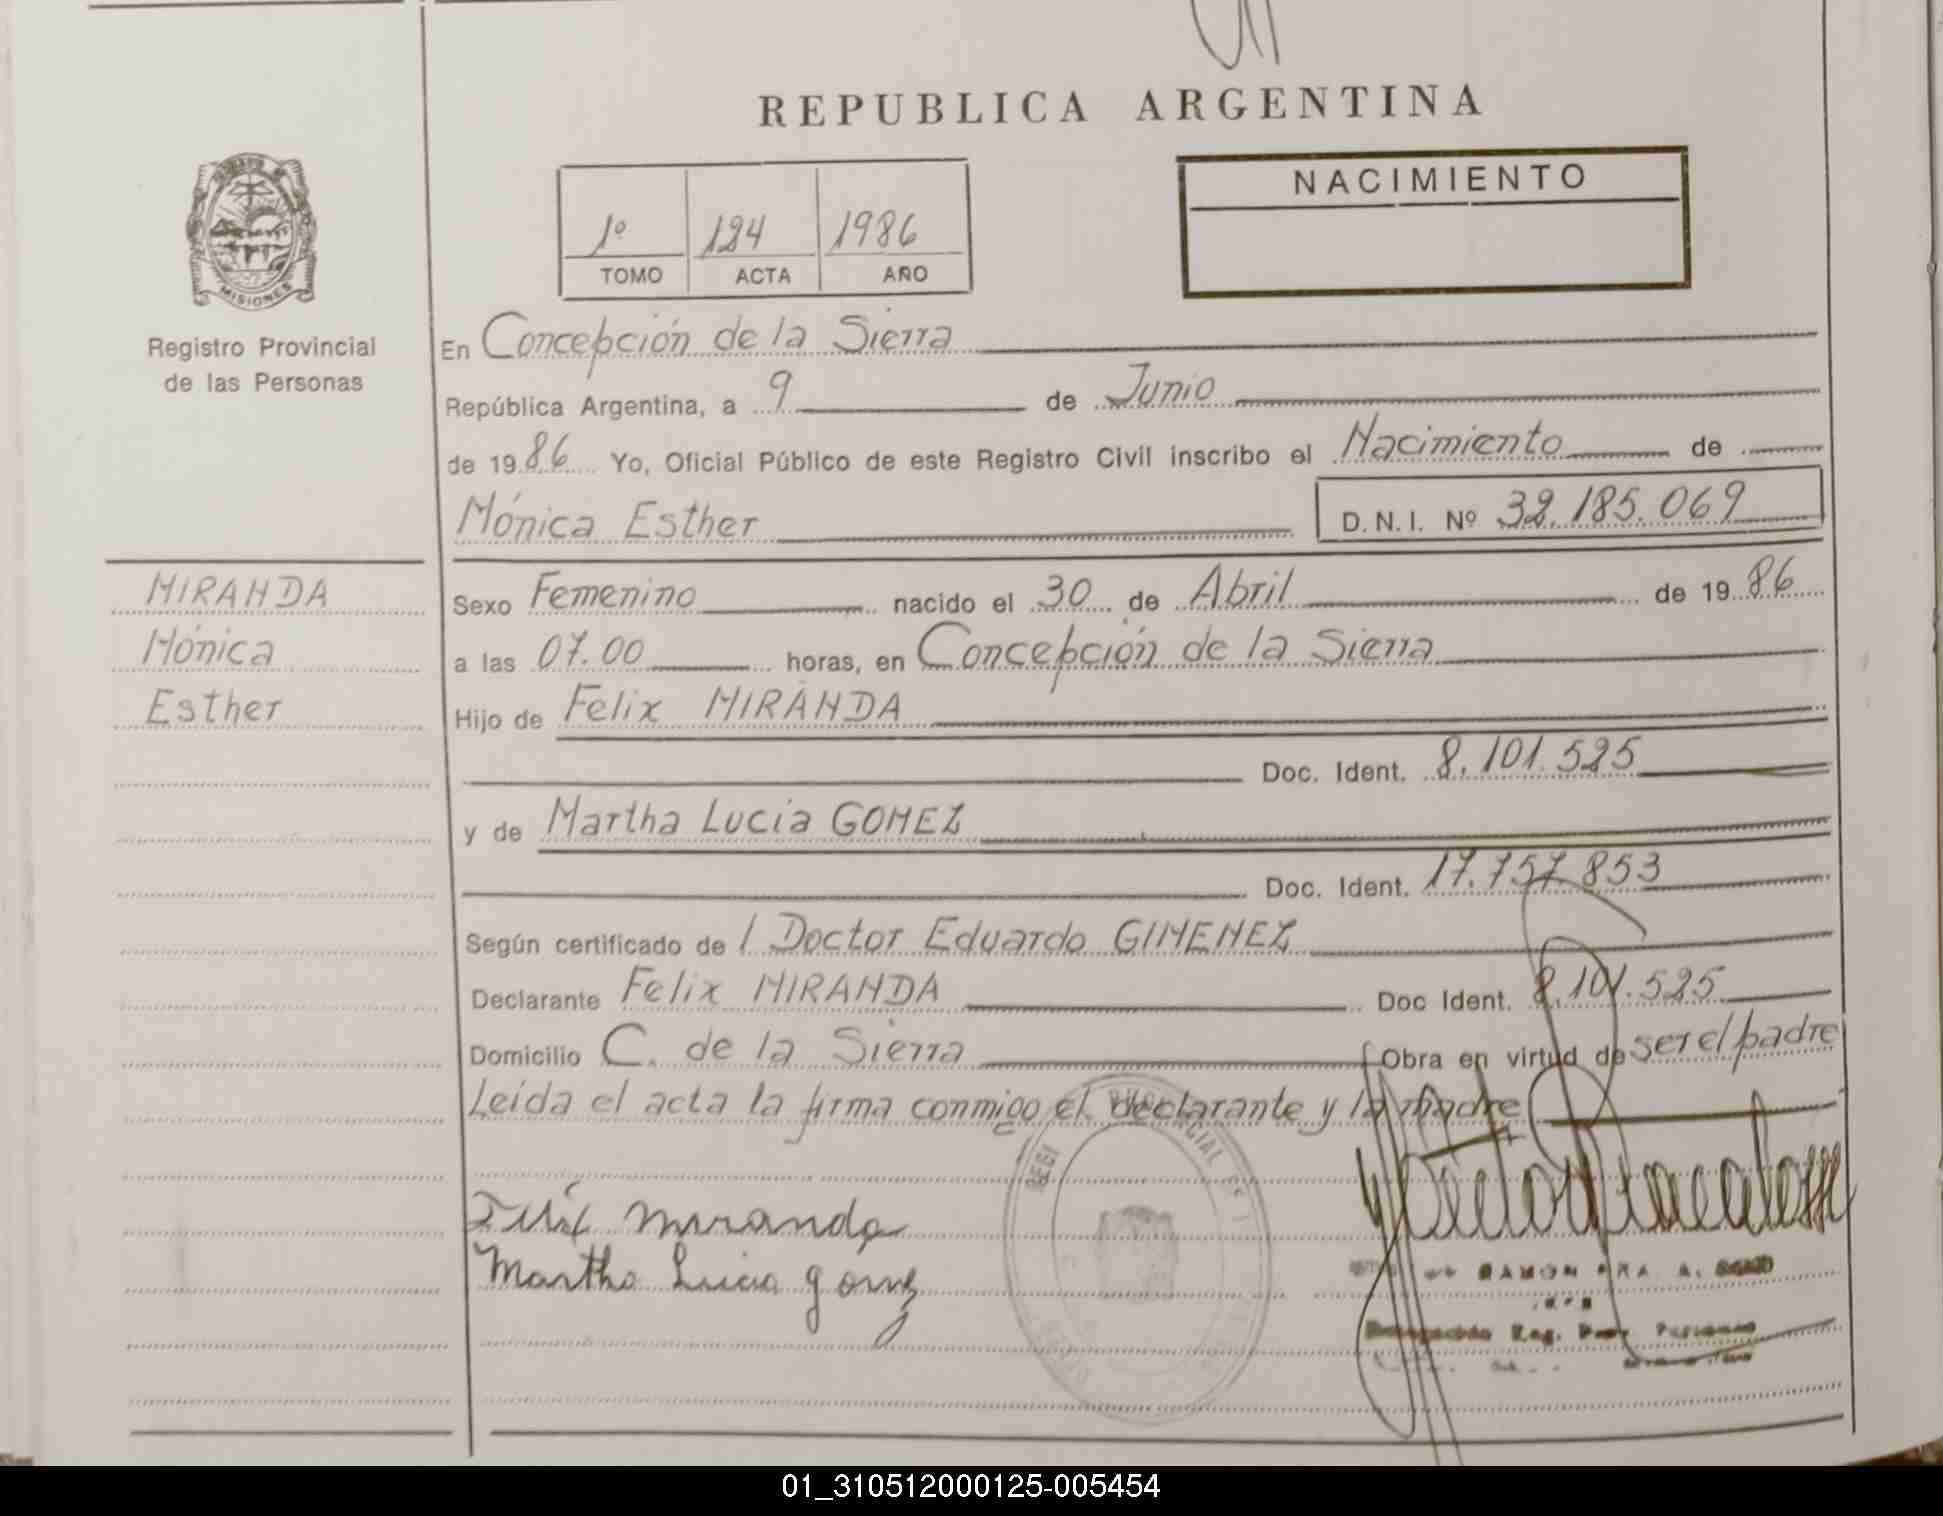 REPUBLICA ARGENTINA
NACIMIENTO
1º 124 1986
TOMO ACTA AÑO
MISIONES
Registro Provincial
de las Personas
En Concepción de la Sierra
República Argentina, a 9 de Junio
de 1986 Yo, Oficial Público de este Registro Civil inscribo el Nacimiento de
Mónica Esther D.N.I. Nº 32.185.069
MIRANDA
Mónica
Esther
Sexo Femenino nacido el 30 de Abril de 1986
a las 07.00 horas, en Concepción de la Sierra
Hijo de Felix MIRANDA
Doc. Ident. 8.101.525
y de Martha Lucía GOMEZ
Doc. Ident. 17.757.853
Según certificado de l Doctor Eduardo GIMENEZ
Declarante Felix MIRANDA Doc Ident. 8.101.525
Domicilio C. de la Sierra Obra en virtud de ser el padre
Leída el acta la firma conmigo el declarante y la madre
Felix Miranda
Martha Lucia gomez
RAMON
Reg. Personas
01_310512000125-005454